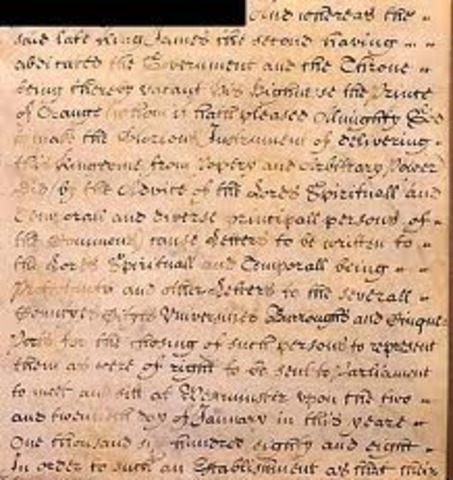 And whereas the
said late King James the second having
abdicated the Government and the Throne
being thereby vacant His Highnesse the Prince
of Orange (whom it hath pleased Almighty God
to make the Glorious Instrument of delivering
this Kingdome from Popery and Arbitrary Power
did (by the Advice of the Lords Spirituall and
Temporall and diverse principall persons of
the Commons) cause Letters to be written to
the Lords Spirituall and Temporall being
Protestants and other Letters to the severall
Countyes Cityes Universities Burroughs and Cinque
Ports for the chusing of such persons to represent
them as were of right to be sent to Parliament
to meet and sitt at Westminster upon the two
and twentieth day of January in this yeare
One thousand six hundred eighty and eight
In order to such an Establishment as that their